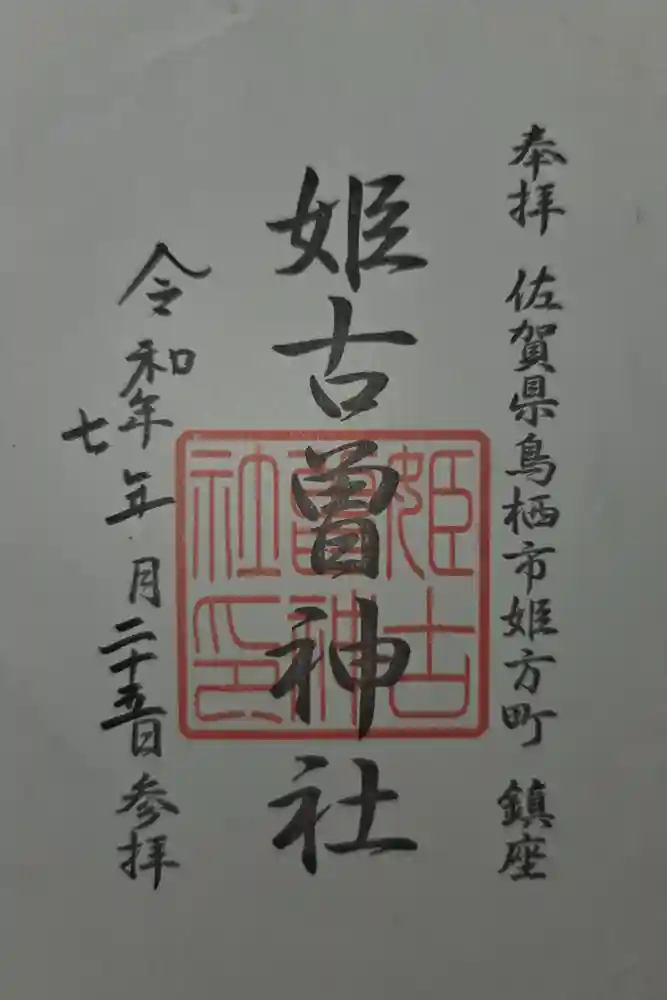 奉拝 佐賀県鳥栖市姫方町 鎮座
姫古曽神社
令和七年五月二十五日 参拝
姫古
曽神
社印